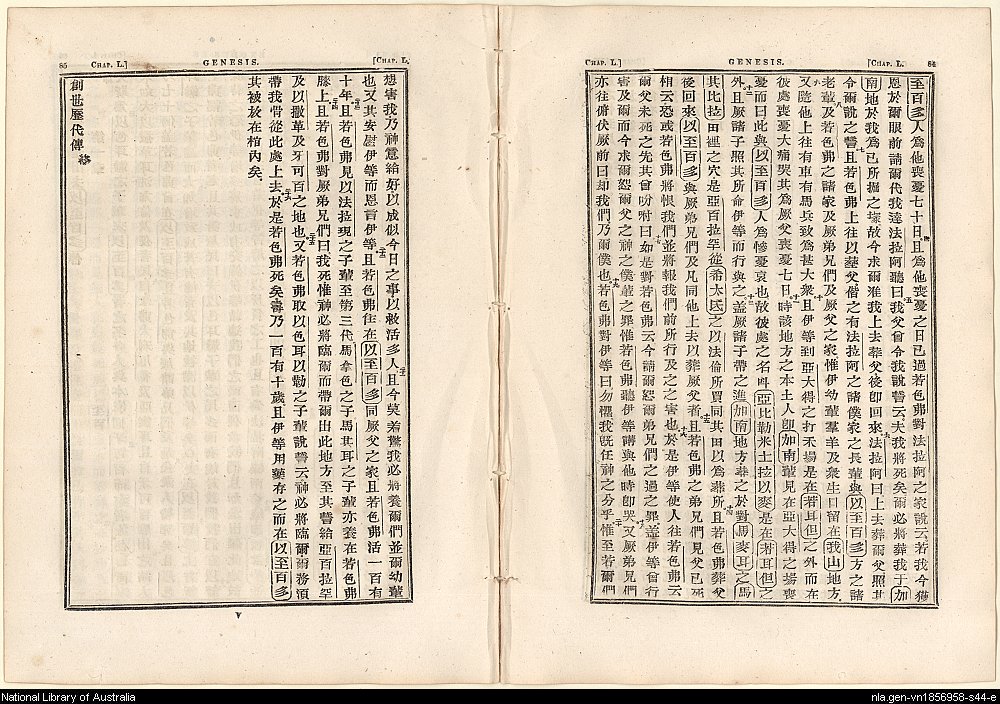 [CHAP. L.
GENESIS.
84
CHAP. L.]
至百多人為他喪憂七十日且為他喪憂之日已過若色弗對法拉阿之家說云若我今獲
恩於爾眼前請爾代我達法拉阿聽曰我父曾令我說誓云夫我將死矣爾必將葬我于加
南地於我為己所掘之塚故今求爾准我上去葬父後卽回來法拉阿曰上去葬爾父照其
令爾說之誓且若色弗上往以葬父偕之有法拉阿之諸僕家之長輩與以至百多方之諸
老輩及若色弗之諸家及厥弟兄們及厥父之家惟伊幼輩羣羊及衆生口留在我山地方
又隨他上往有車有馬兵致為甚大衆且伊等到亞大得之打禾場是在若耳但之外而在
彼處喪憂大痛哭其為厥父喪憂七日時該地方之本土人卽加南輩見在亞大得之場喪
憂而曰此與以至百多人為慘憂哀也故彼處之名呌亞比勒米士拉以麥是在若耳但之
外且厥諸子照其所命伊等而行與之蓋厥諸子帶之進加南地方葬之於對馬麥耳之馬
其比拉田裡之穴是亞百拉罕從希太氏之以法倫所買同其田以為葬所且若色弗葬父
後回來以至百多與厥弟兄們及凡同他上去以葬厥父者且若色弗之弟兄們見父已死
相云恐或若色弗將恨我們並將報我們前所行及之之害也於是伊等使人往若色弗云
爾父未死之先其曾吩咐曰如是對若色弗云今請爾恕爾弟兄們之過之罪蓋伊等曾行
害及爾而今求爾恕爾父之神之僕輩之罪惟若色弗聽伊等講與他時卽哭又厥弟兄們
亦往俯伏厥前曰却我們乃爾僕也若色弗對伊等曰勿懼我旣任神之分乎惟至若爾們
85
CHAP. L.]
GENESIS.
[CHAP. L.
想害我乃神意給好以成似今日之事以救活多人且今莫若懼我必將養爾們並爾幼輩
也又其安慰伊等而恩言伊等且若色弗住在以至百多同厥父之家且若色弗活一百有
十年且若色弗見以法拉現之子輩至第三代馬拿色之子馬其耳之子輩亦養在若色弗
膝上且若色弗對厥弟兄們曰我死惟神必將臨爾而帶爾出此地方至其誓給亞百拉罕
及以撒革及牙可百之地也又若色弗取以色耳以勒之子輩說誓云神必將臨爾爾務須
帶我骨從此處上去於是若色弗死矣壽乃一百有十歲且伊等用藥存之而在以至百多
其被放在棺內矣
創世歷代傳終
V
National Library of Australia
nla.gen-vn1856958-s44-e